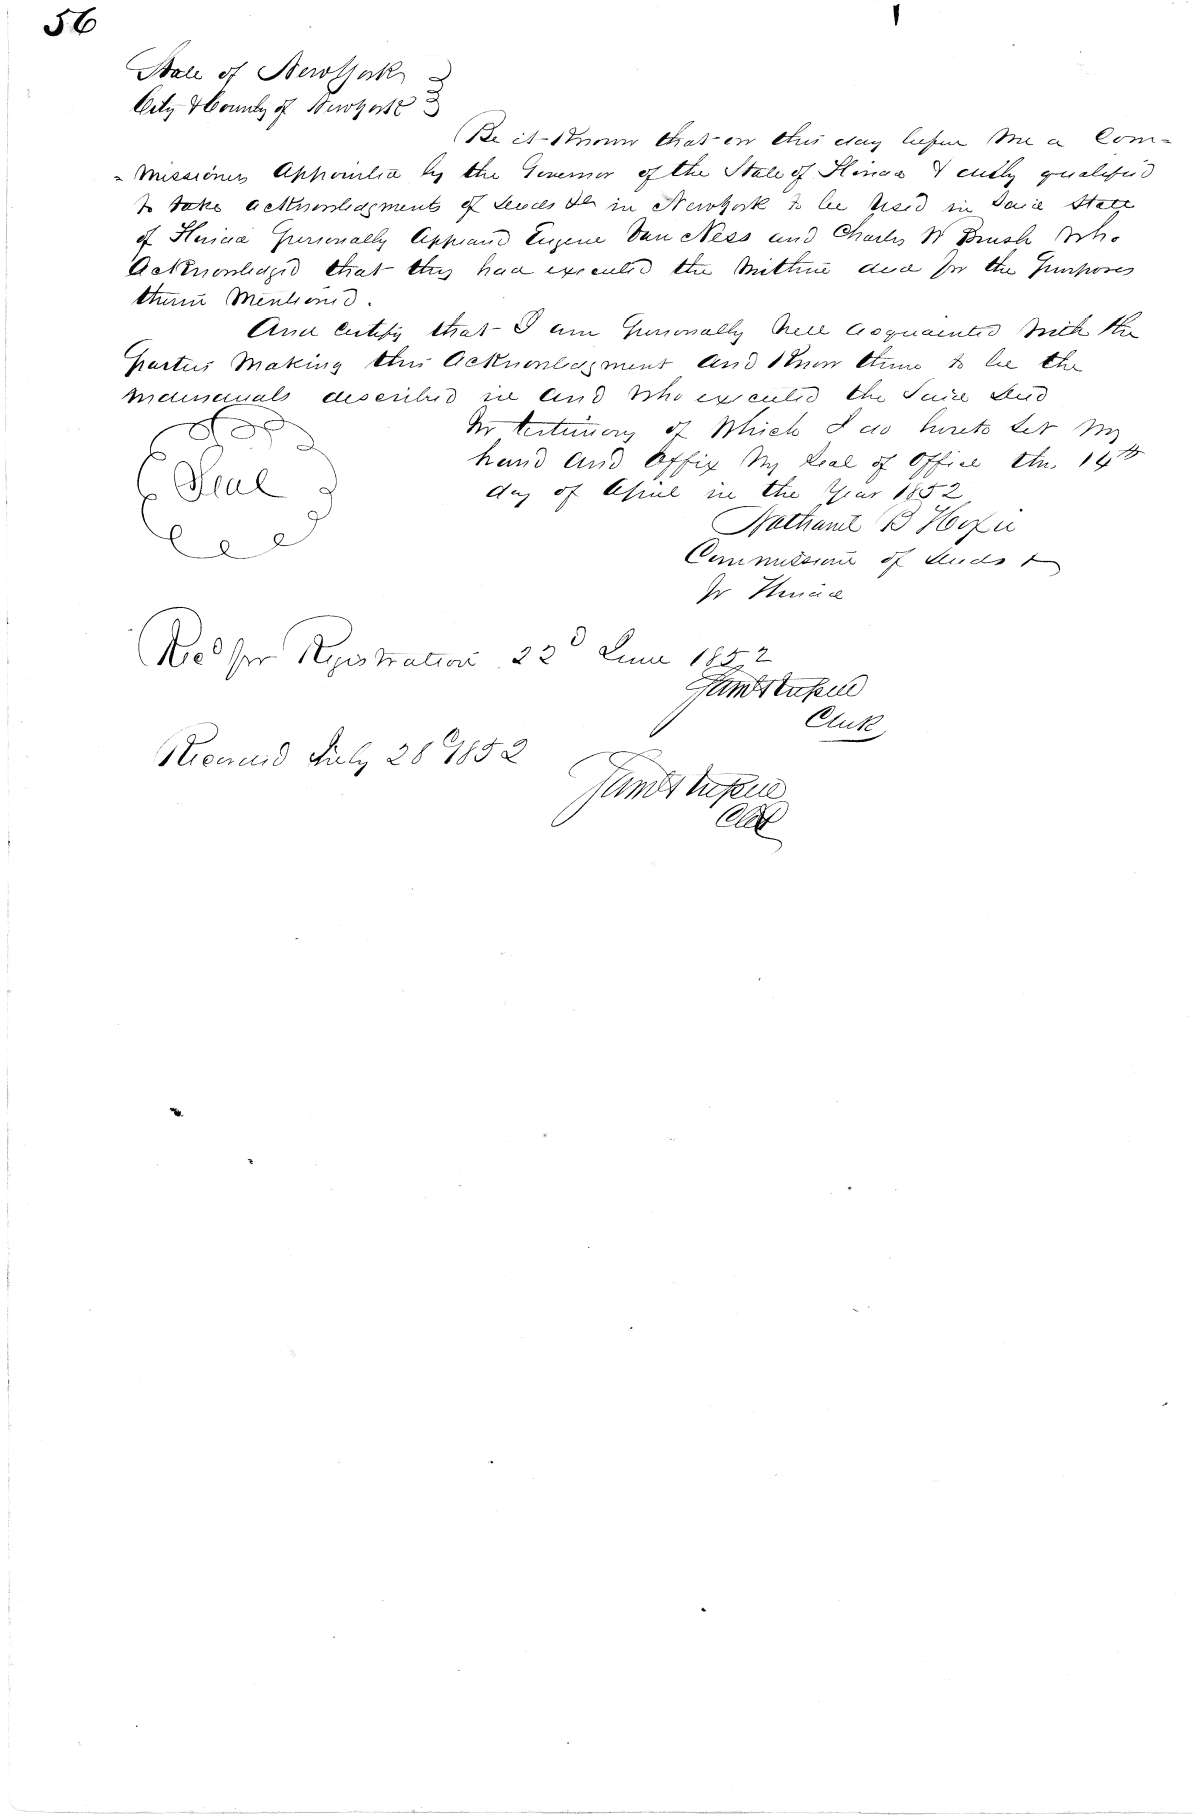 56
State of New York
City & County of New York
Be it Known that on this day before me a Com=
=missioner Appointed by the Governor of the State of Florida & duly qualified
to take acknowledgments of deeds &c in New York to be Used in Said State
of Florida Personally Appeared Eugene Van Ness and Charles W Brush Who
Acknowledged that they had executed the Within deed for the Purposes
therein Mentioned.
And Certify that I am Personally Well acquainted With the
Parties Making this Acknowledgment and Know them to be the
individuals described in and Who executed the Said deed
In testimony of Which I do hereto Set My
hand and Affix My Seal of Office the 14th
day of April in the Year 1852
Seal
Nathaniel B Hoxie
Commissioner of deeds &
for Florida
Recd for Registration 22d June 1852
Clerk
Recorded July 28th 1852
Clk